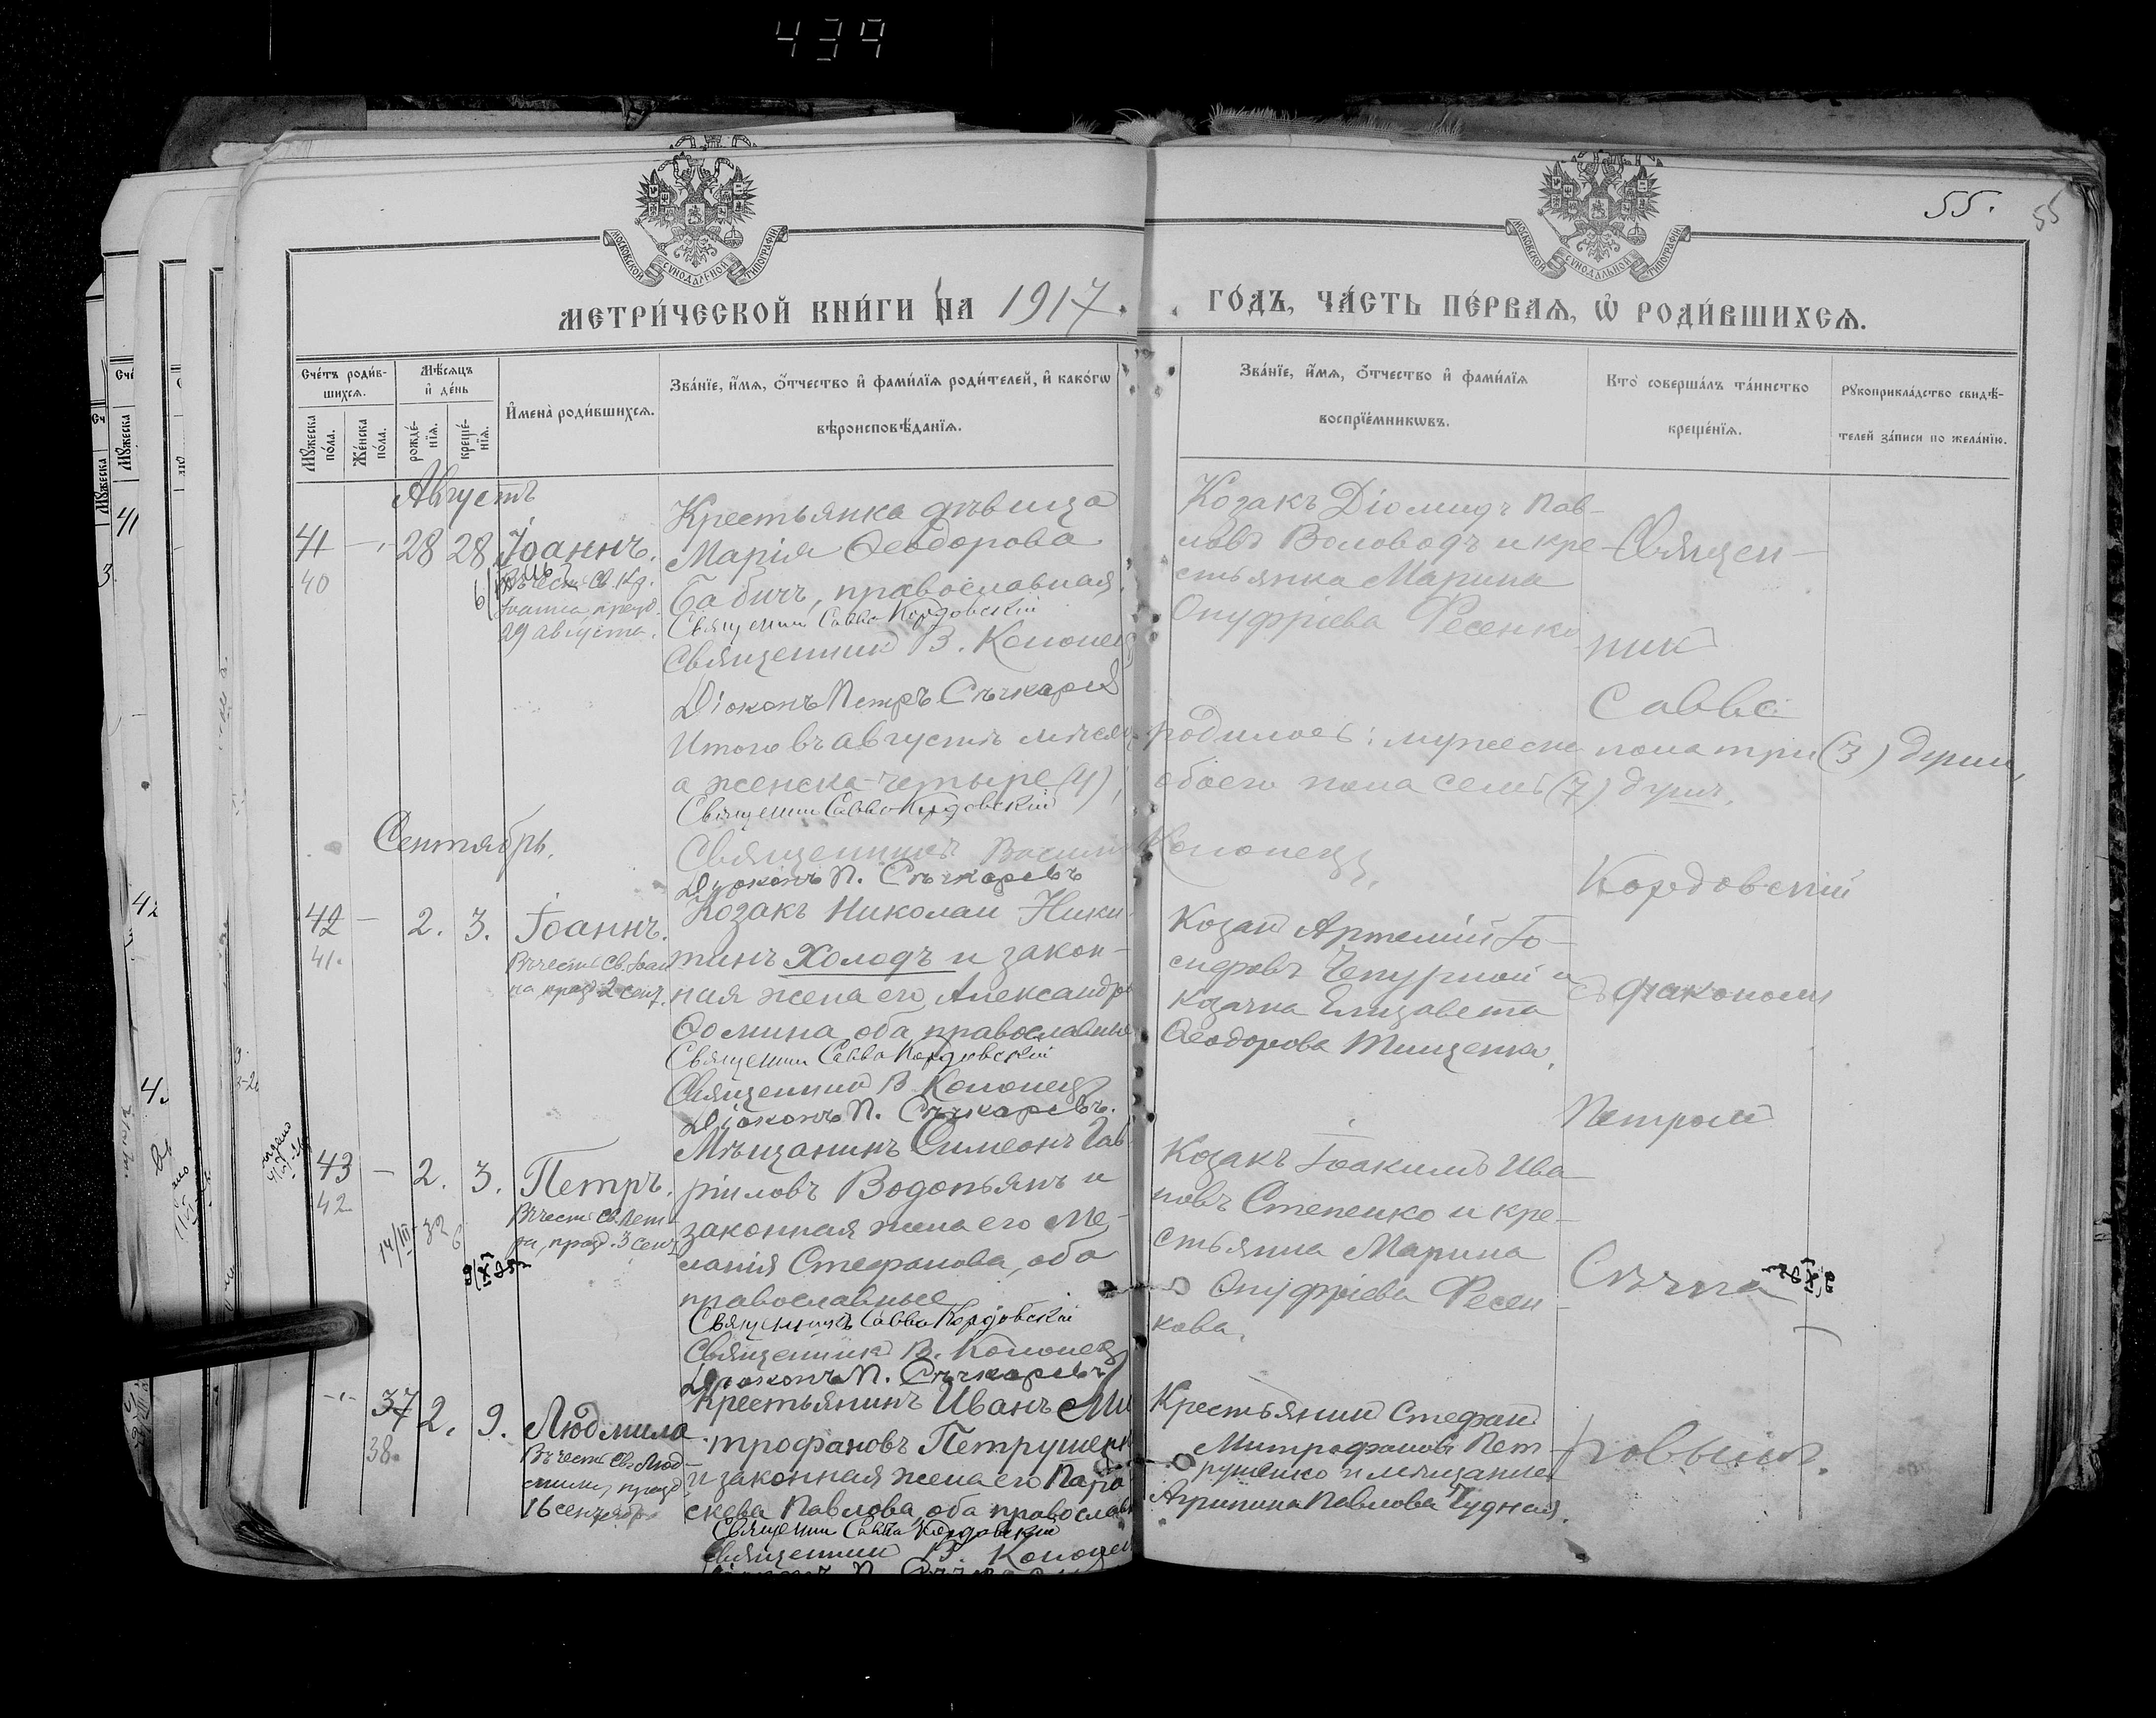 439
55.
55
МОСКОВСКОЙ СѴНОДАЛЬНОЙ ТИПОГРАФІИ
МОСКОВСКОЙ СѴНОДАЛЬНОЙ ТИПОГРАФІИ
МЕТРИ́ЧЕСКОЙ КНИ́ГИ НА 1917.
ГО́ДЪ, ЧА́СТЬ ПЕ́РВАѦ, Ѡ҆ РОДИ́ВШИХСѦ.
Сче́тъ роди́в-
шихсѧ.
Мꙋ́жеска
по́ла.
Же́нска
по́ла.
Мѣ́сѧцъ
и҆ де́нь
рожде́-
нїѧ.
креще́-
нїѧ.
И҆мена̀ роди́вшихсѧ.
Зва́нїе, и҆́мѧ, ѻ҆́тчество и҆ фами́лїѧ роди́телей, и҆ како́гѡ
вѣроисповѣ́данїѧ.
Зва́нїе, и҆́мѧ, ѻ҆́тчество и҆ фами́лїѧ
воспрїе́мникѡвъ.
Кто̀ соверша́лъ та́инство
креще́нїѧ.
Рꙋкоприкла́дство свидѣ́-
телей за́писи по жела́нїю.
Августъ
41 — 28 28 Іоаннъ.
40
Іоанна празд.
29 августа.
Крестьянка дѣвица
Марія Ѳеодорова
Бабичъ, православная.
Священник Савва Кордовскій
Священник В. Кононец
Діаконъ Петръ Сѣчкарев
Козакъ Діомидъ Пав-
ловъ Воловодъ и кре-
стьянка Марина
Онуфріева Фесенко
Священ-
ник
Савва
Кордовскій
съ діаконом
Петром
Сѣчка-
ревымъ.
Итого въ августѣ месяцѣ родилось: мужеска пола три (3) души,
а женска четыре (4), обоего пола семь (7) душъ.
Священник Савва Кордовскій
Священникъ Василий Кононец.
Діаконъ П. Сѣчкаревъ
Сентябрь.
42 — 2. 3. Іоаннъ.
41.
Въ честь Св. Іоан
на празд 2 сент.
Козакъ Николай Ники-
тинъ Холодъ и закон-
ная жена его Александра
Ѳомина, оба православные
Священник Савва Кордовскій
Священник В Кононец
Діаконъ П. Сѣчкаревъ.
Козак Артемій Іо-
сифовъ Чепурной и
козачка Елизавета
Ѳеодорова Тищенко.
43 — 2. 3. Петръ.
42
Въ честь Св. Пет-
ра, празд. 3 сент.
14/III 32
9/X
Мѣщанинъ Симеонъ Гав-
ріиловъ Водопьянъ и
законная жена его Ме-
ланія Стефанова, оба
православные
Священникъ Савва Кордовскій
Священник В. Кононец
Діаконъ П. Сѣчкаревъ
Козакъ Іоакимъ Ива-
новъ Степенко и кре-
стьянка Марина
Онуфріева Фесен-
кова.
37 2. 9. Людмила
38.
Въ честь Св. Люд-
милы, празд
16 сентября
Крестьянинъ Иванъ Ми
трофановъ Петрушенк
и законная жена его Пара
скева Павлова, оба православ
Священник Савва Кордовскій
Священник В. Кононец
Крестьянин Стефан
Митрофановъ Пет-
рушенко и мещанка
Агрипина Павлова Чудная.